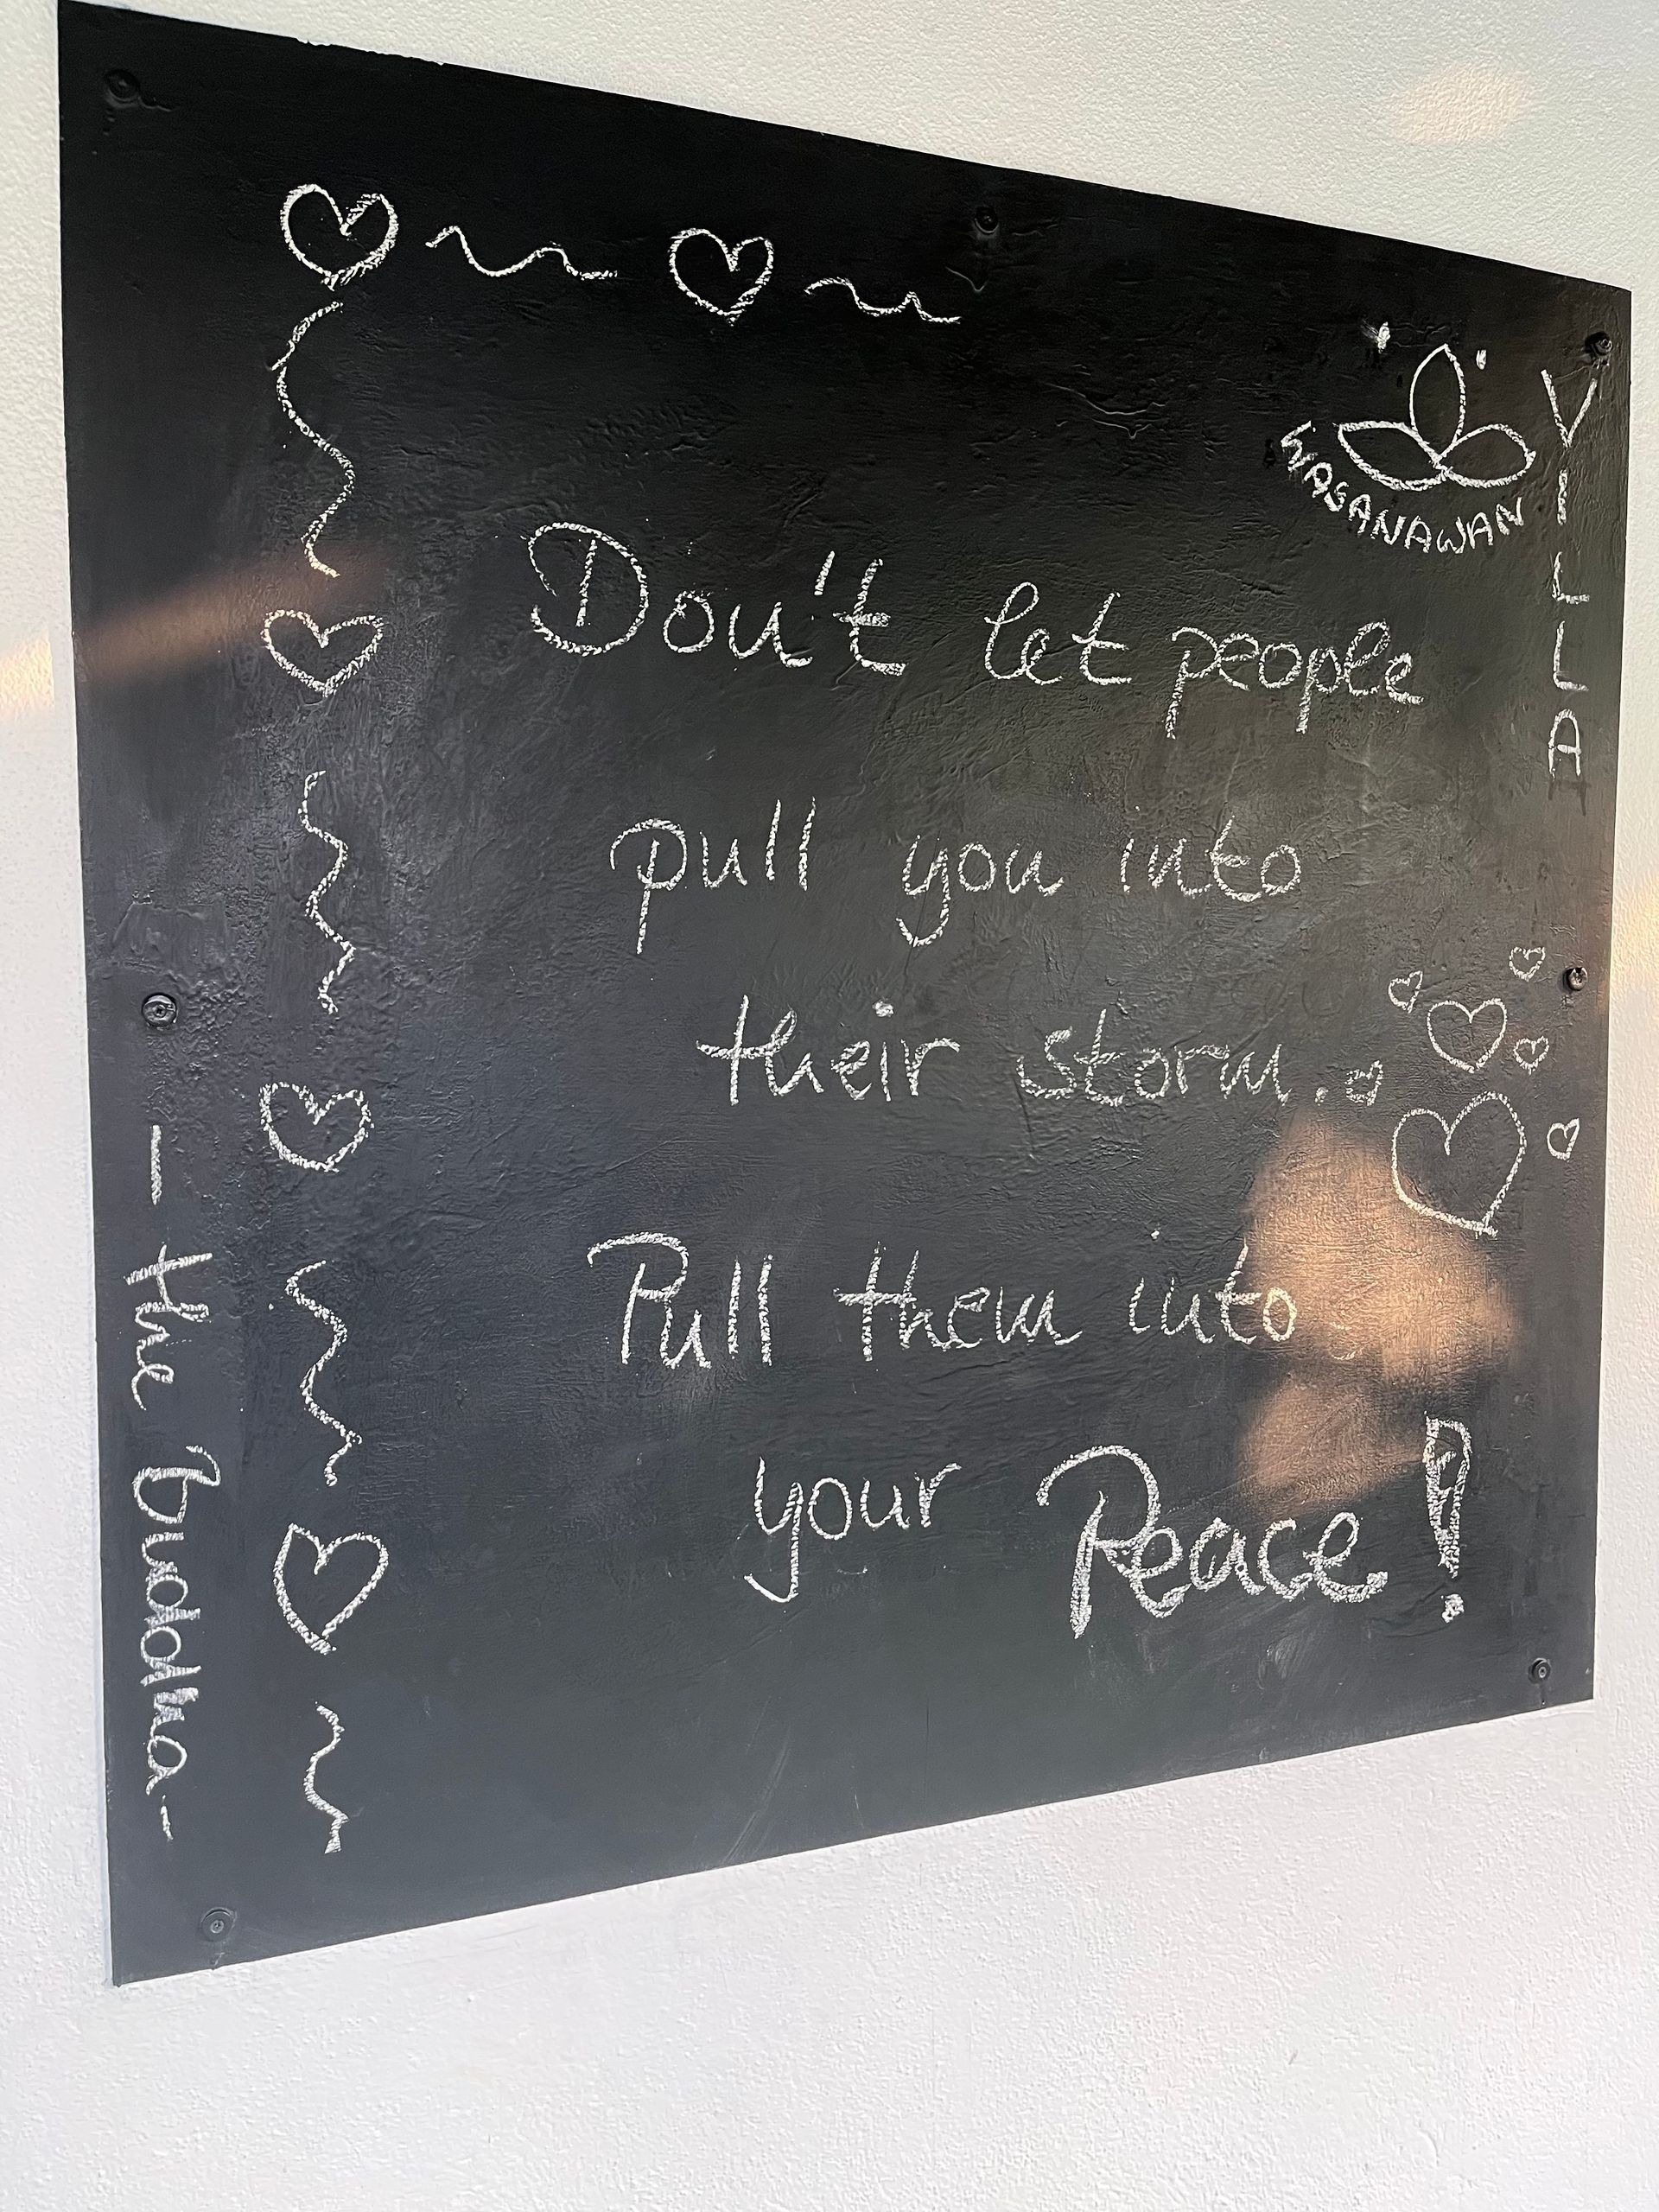 WASANAWAN
VILLA
Don't let people
pull you into
their storm.
Pull them into
your Peace!
- the Buddha -